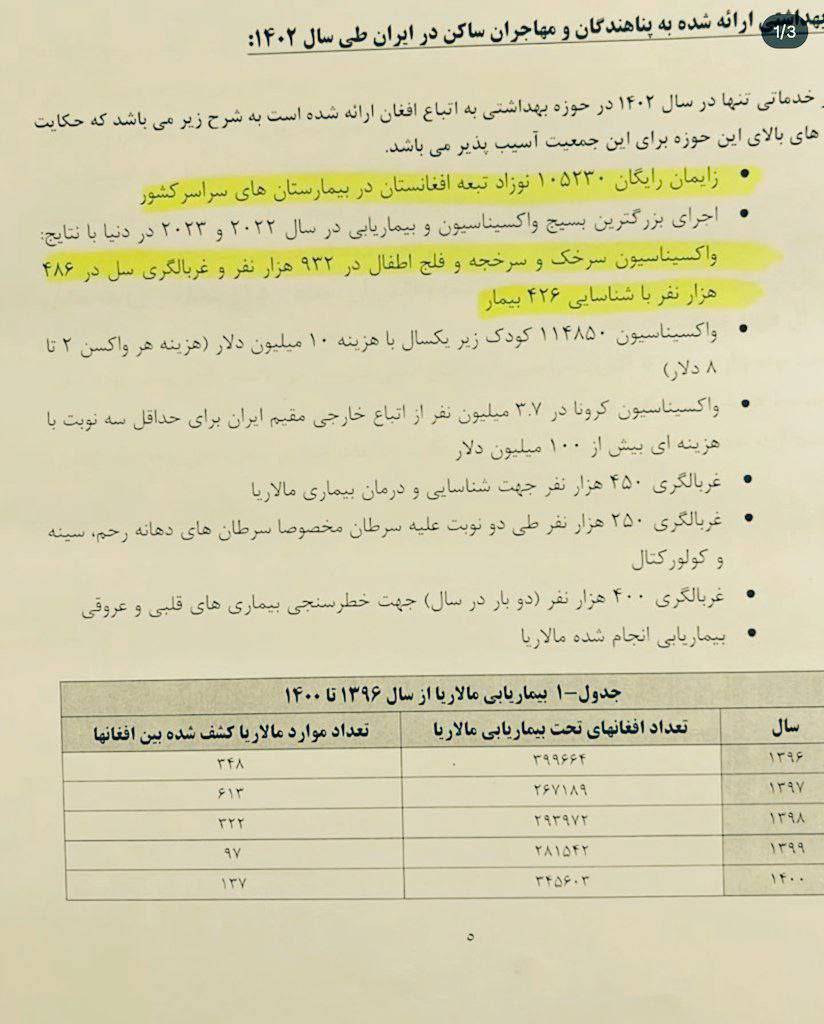 1/3
بهداشتی ارائه شده به پناهندگان و مهاجران ساکن در ایران طی سال ۱۴۰۲:
خدماتی تنها در سال ۱۴۰۲ در حوزه بهداشتی به اتباع افغان ارائه شده است به شرح زیر می باشد که حکایت
های بالای این حوزه برای این جمعیت آسیب پذیر می باشد.
• زایمان رایگان ۱۰۵۲۳۰ نوزاد تبعه افغانستان در بیمارستان های سراسر کشور
• اجرای بزرگترین بسیج واکسیناسیون و بیماریابی در سال ۲۰۲۲ و ۲۰۲۳ در دنیا با نتایج:
واکسیناسیون سرخک و سرخجه و فلج اطفال در ۹۳۲ هزار نفر و غربالگری سل در ۴۸۶
هزار نفر با شناسایی ۴۲۶ بیمار
• واکسیناسیون ۱۱۴۸۵۰ کودک زیر یکسال با هزینه ۱۰ میلیون دلار (هزینه هر واکسن ۲ تا
۸ دلار)
• واکسیناسیون کرونا در ۳.۷ میلیون نفر از اتباع خارجی مقیم ایران برای حداقل سه نوبت با
هزینه ای بیش از ۱۰۰ میلیون دلار
• غربالگری ۴۵۰ هزار نفر جهت شناسایی و درمان بیماری مالاریا
• غربالگری ۲۵۰ هزار نفر طی دو نوبت علیه سرطان مخصوصا سرطان های دهانه رحم، سینه
و کولورکتال
• غربالگری ۴۰۰ هزار نفر (دو بار در سال) جهت خطرسنجی بیماری های قلبی و عروقی
• بیماریابی انجام شده مالاریا
جدول-۱ بیماریابی مالاریا از سال ۱۳۹۶ تا ۱۴۰۰
سال تعداد افغانهای تحت بیماریابی مالاریا تعداد موارد مالاریا کشف شده بین افغانها
۱۳۹۶ ۳۹۹۶۶۴ ۳۴۸
۱۳۹۷ ۲۶۷۱۸۹ ۶۱۳
۱۳۹۸ ۲۹۳۹۷۲ ۳۲۲
۱۳۹۹ ۲۸۱۵۴۲ ۹۷
۱۴۰۰ ۳۴۵۶۰۳ ۱۳۷
۵